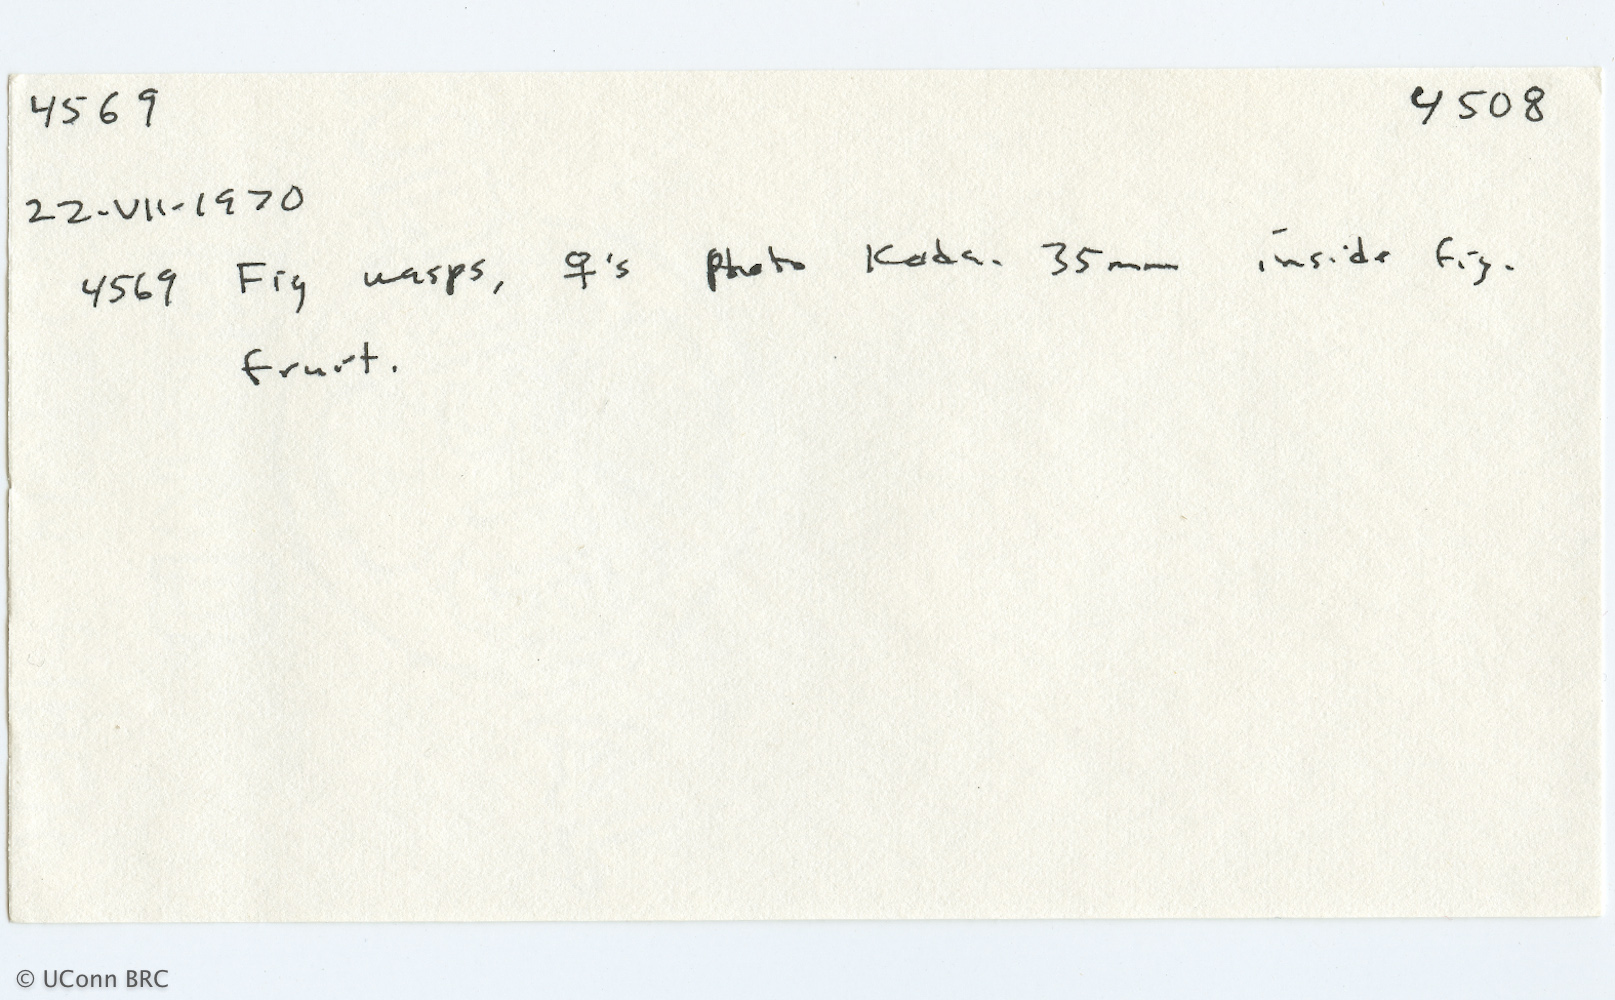 4569 4508
22-VII-1970
4569 Fig wasps, ♀'s photo Koda. 35mm inside fig.
fruit.
© UConn BRC